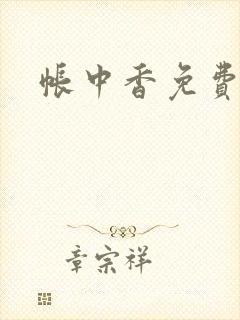 帐中香免费
章宗祥